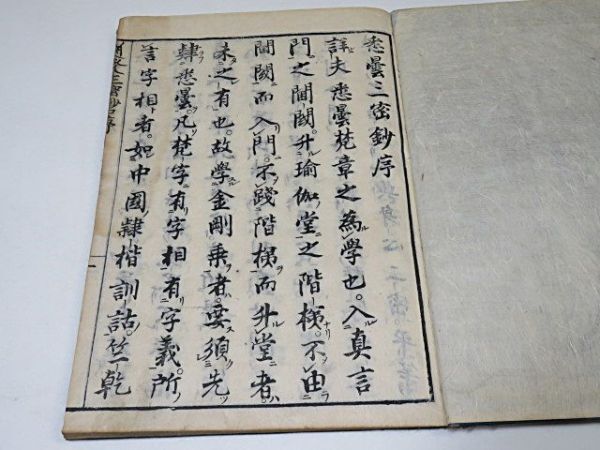 悉曇三密鈔序
詳夫悉曇梵章之為學也入真言
門之閫閾升瑜伽堂之階梯不由
閫閾而入門不踐階梯而升堂者
未之有也故學金剛乗者要須先
肄悉曇凡梵字有字相有字義所
言字相者如中國隷楷訓詁竺乾